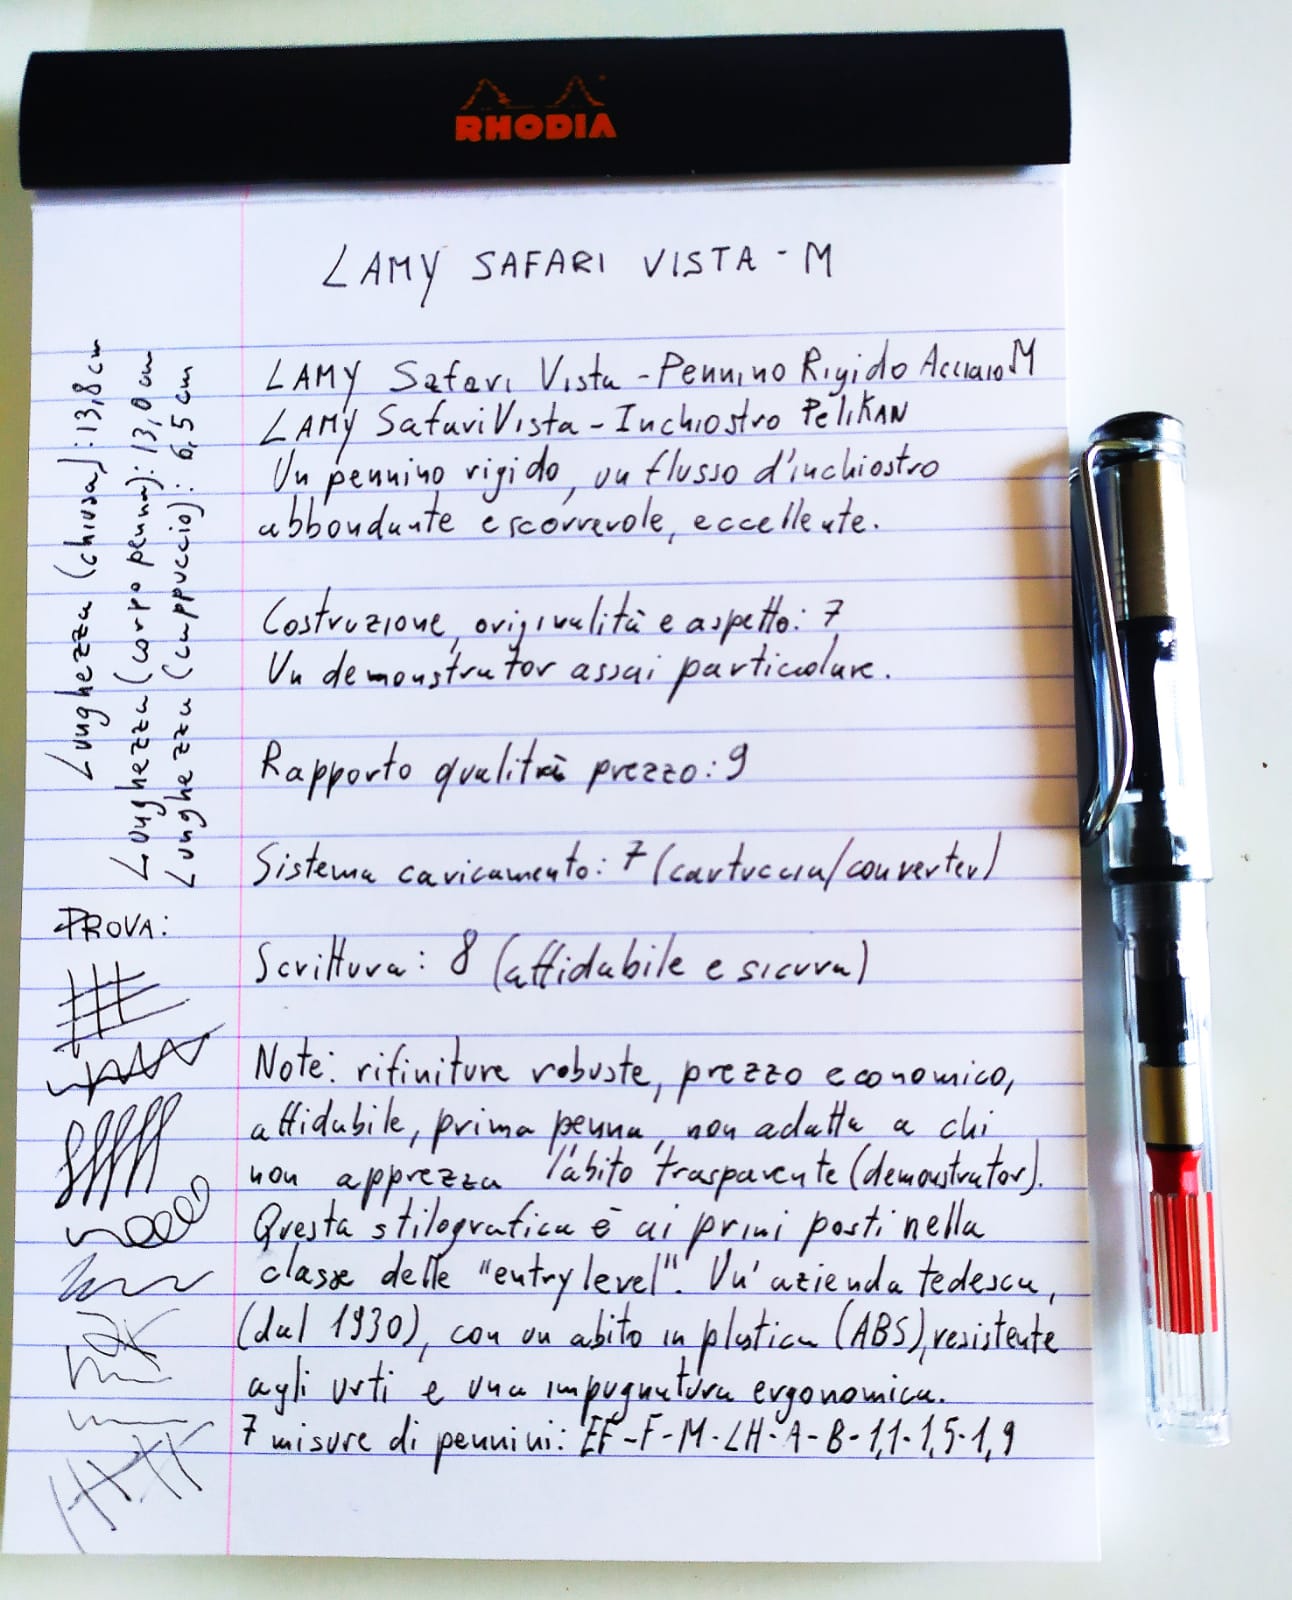 RHODIA
LAMY SAFARI VISTA - M
LAMY Safari Vista - Pennino Rigido Acciaio M
LAMY Safari Vista - Inchiostro PELIKAN
Un pennino rigido, un flusso d'inchiostro
abbondante e scorrevole, eccellente.
Costruzione, originalità e aspetto: 7
Un demonstrator assai particolare.
Rapporto qualità prezzo: 9
Sistema caricamento: 7 (cartuccia/converter)
Scrittura: 8 (affidabile e sicura)
Note: rifiniture robuste, prezzo economico,
affidabile, prima penna, non adatta a chi
non apprezza l'abito trasparente (demonstrator).
Questa stilografica è ai primi posti nella
classe delle "entry level". Un'azienda tedesca,
(dal 1930), con un abito in plastica (ABS), resistente
agli urti e una impugnatura ergonomica.
7 misure di pennini: EF-F-M-LH-A-B-1,1-1,5-1,9
Lunghezza (chiusa): 13,8 cm
Lunghezza (corpo penna): 13,0 cm
Lunghezza (cappuccio): 6,5 cm
PROVA: